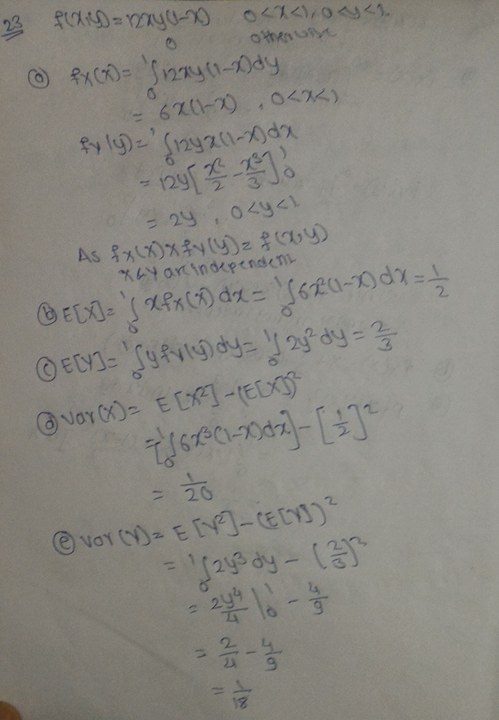 23 f(x,y)=12xy(1-x) 0<x<1, 0<y<1
0 otherwise
(a) fx(x)= ¹∫₀ 12xy(1-x)dy
= 6x(1-x) , 0<x<1
fy(y)= ¹∫₀ 12yx(1-x)dx
= 12y[x²/2 - x³/3]¹₀
= 2y , 0<y<1
As fx(x)xfy(y)= f(x,y)
x&y are independent
(b) E[X]= ¹∫₀ xfx(x)dx = ¹∫₀ 6x²(1-x)dx = 1/2
(c) E[Y]= ¹∫₀ yfy(y)dy = ¹∫₀ 2y²dy = 2/3
(d) var(x)= E[X²]-(E[X])²
= [¹∫₀ 6x³(1-x)dx] - [1/2]²
= 1/20
(e) var(Y)= E[Y²]-(E[Y])²
= ¹∫₀ 2y³dy - (2/3)²
= 2y⁴/4 |¹₀ - 4/9
= 2/4 - 4/9
= 1/18